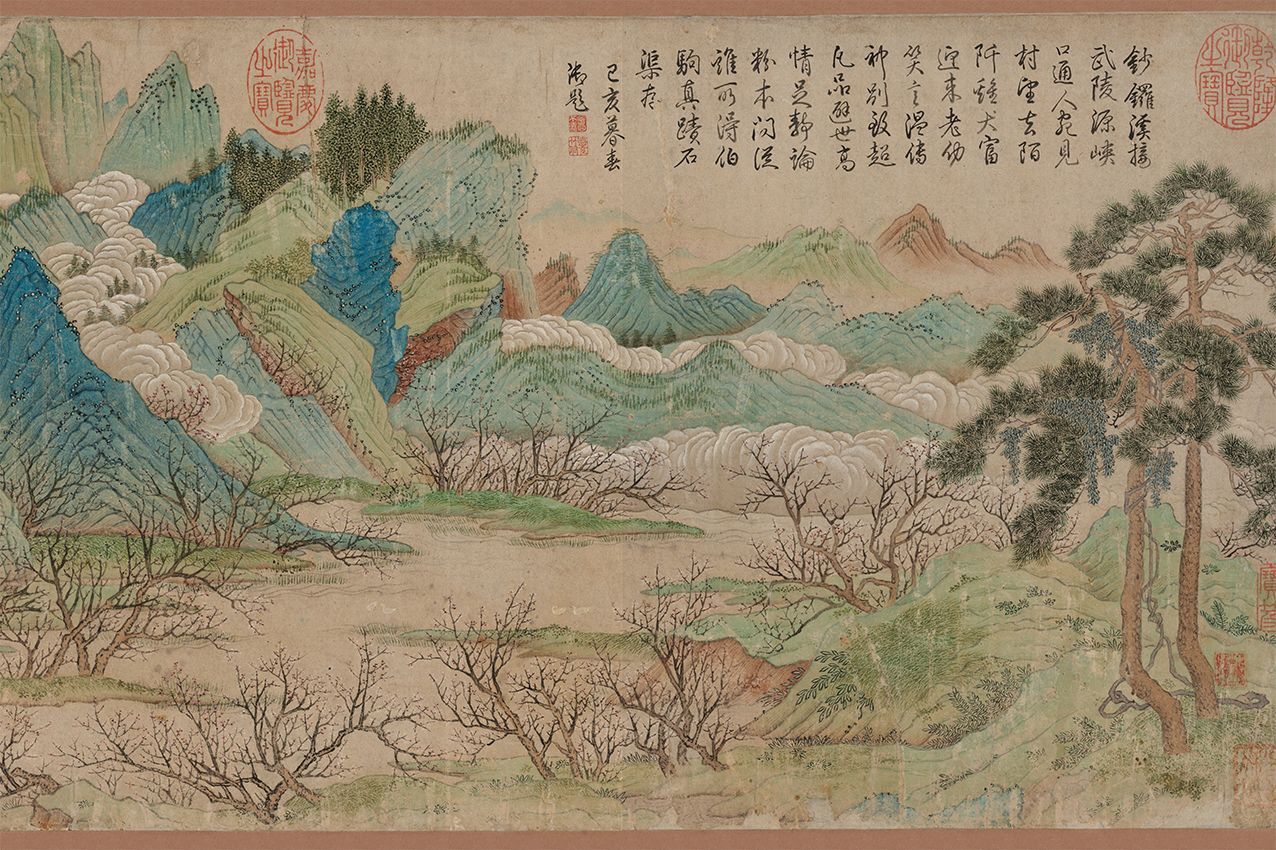 乾隆御覽之寶
鈔鑼溪接
武陵源峽
口通人宛見
村望去陌
阡雞犬富
迎来老幼
笑言温傳
神別致超
凡品辟世高
情足静論
粉本问從
誰所得伯
駒真蹟石
渠存
己亥暮春
御題
嘉慶御覽之寶